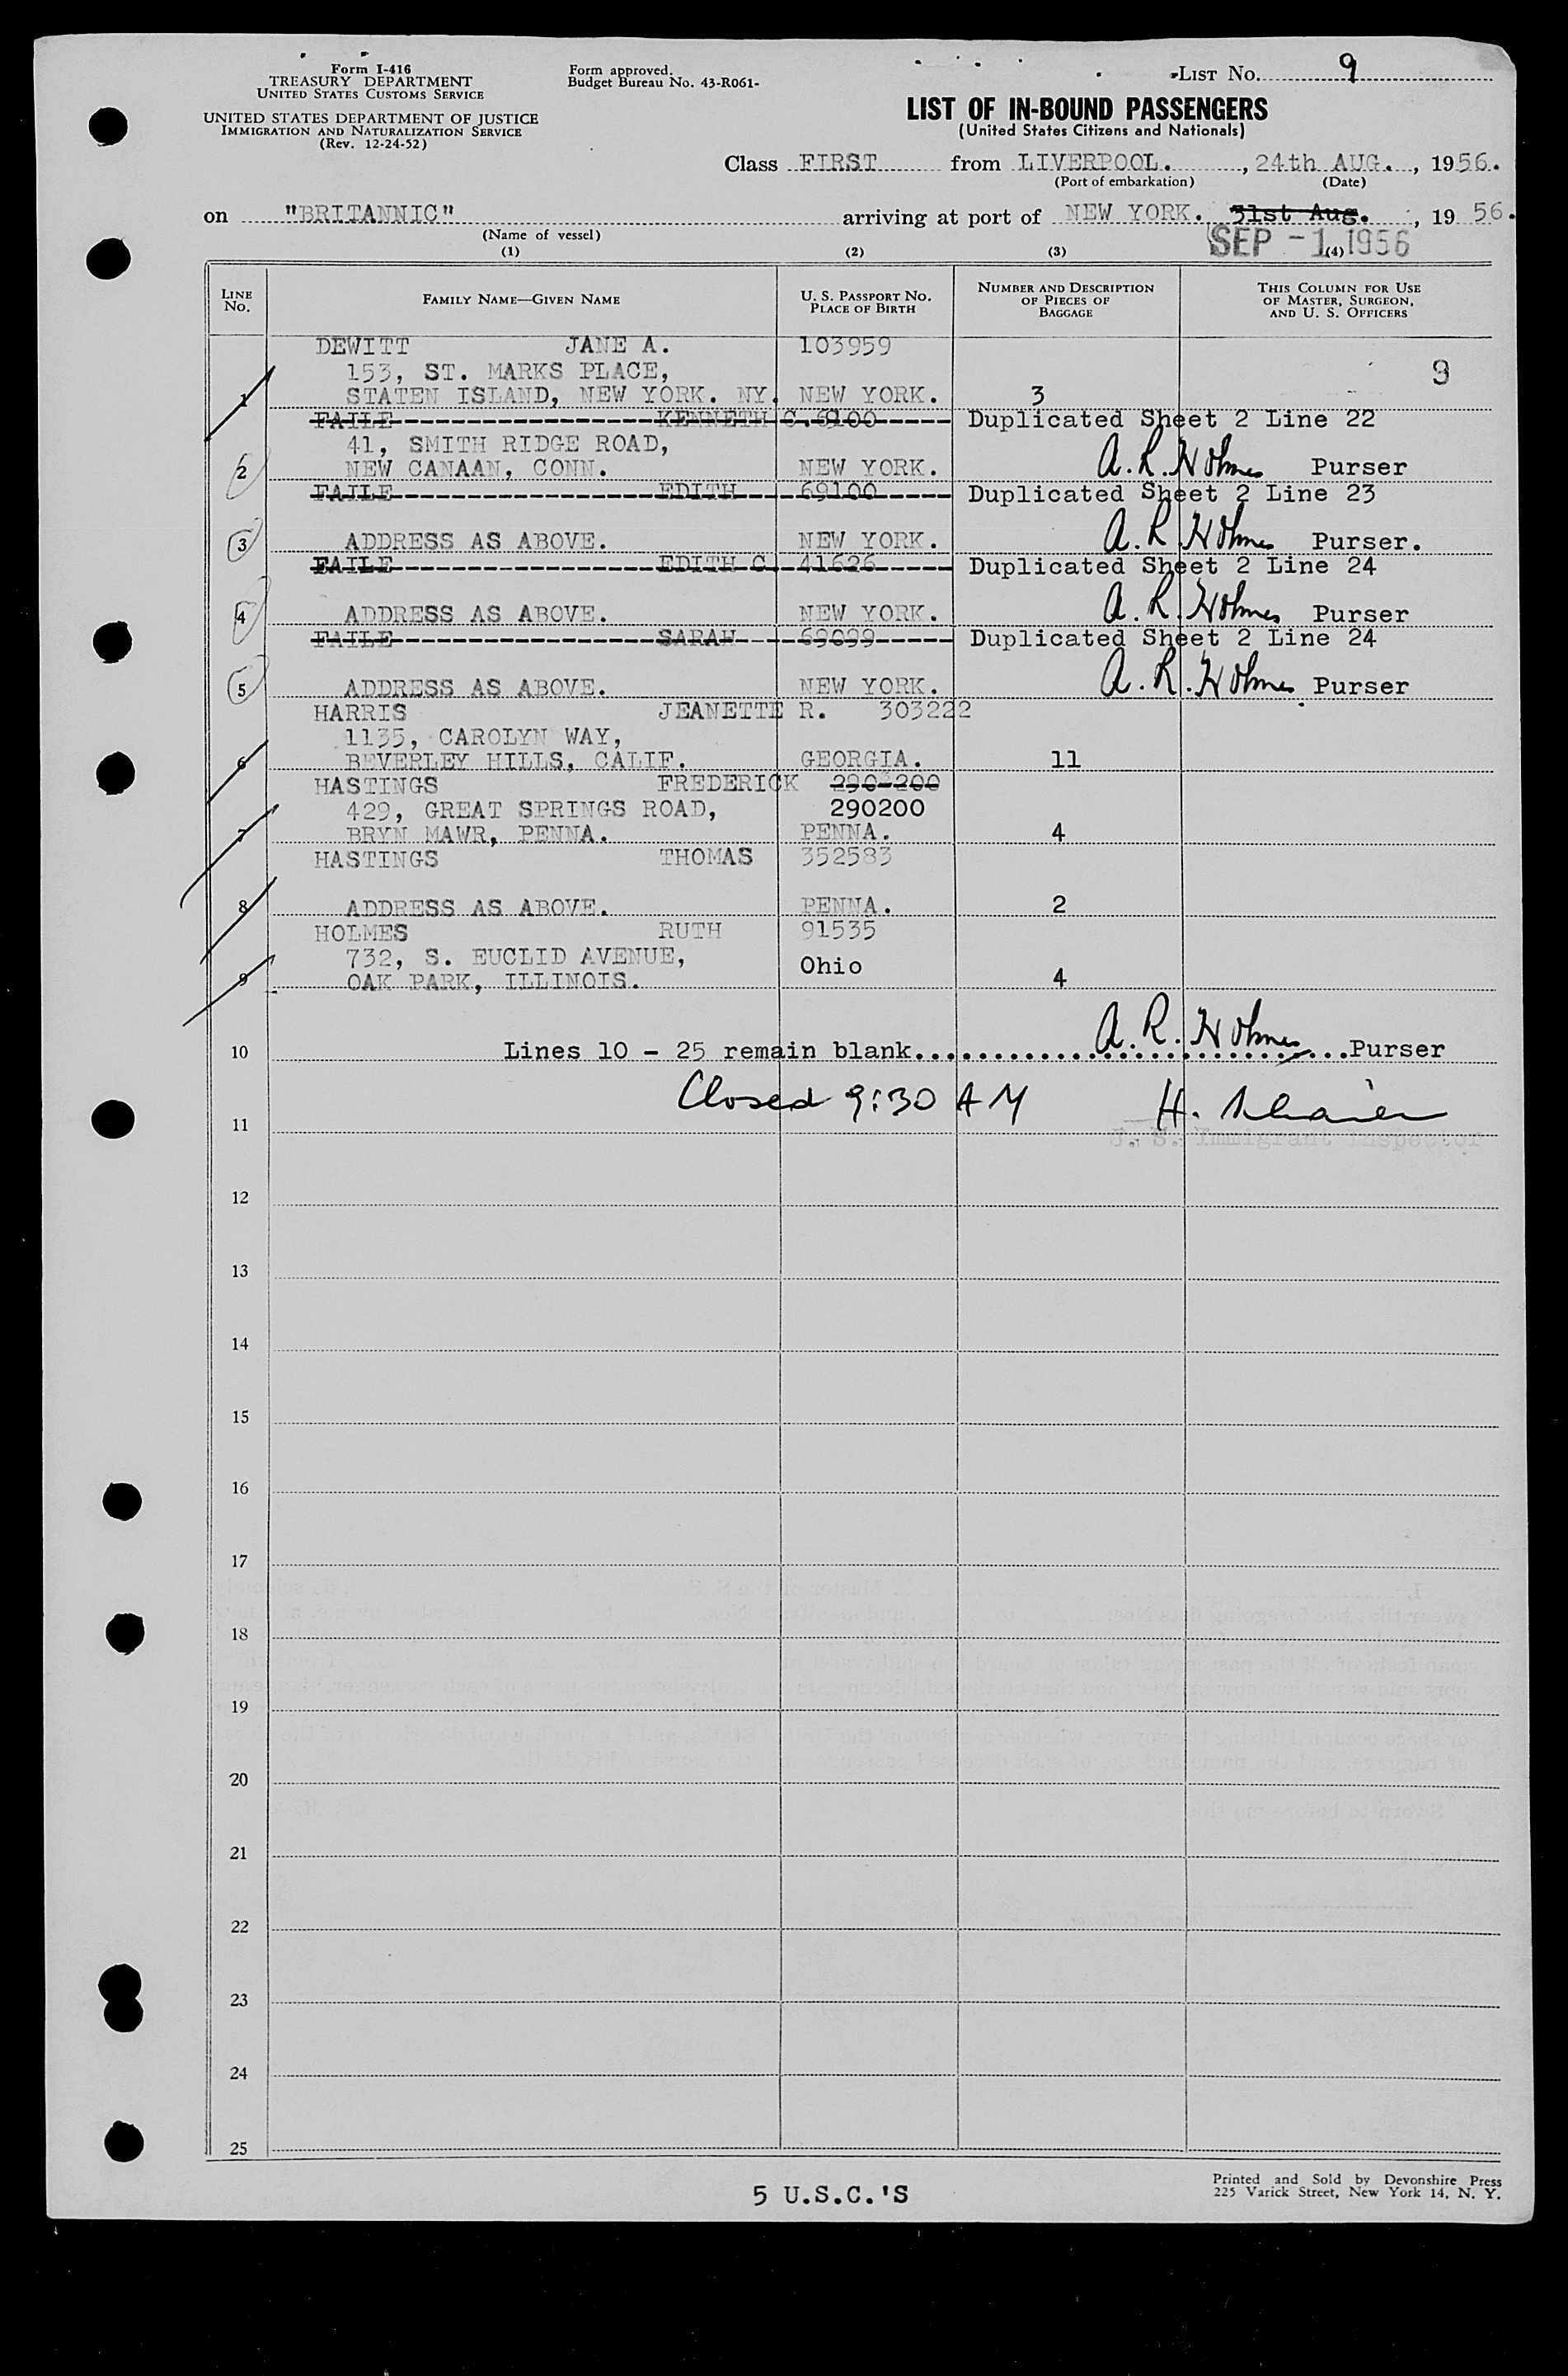 Form I-416
TREASURY DEPARTMENT
UNITED STATES CUSTOMS SERVICE
UNITED STATES DEPARTMENT OF JUSTICE
IMMIGRATION AND NATURALIZATION SERVICE
(Rev. 12-24-52)
Form approved.
Budget Bureau No. 43-R061-
LIST No. 9
LIST OF IN-BOUND PASSENGERS
(United States Citizens and Nationals)
Class FIRST from LIVERPOOL. , 24th AUG. , 1956.
(Port of embarkation) (Date)
on "BRITANNIC" arriving at port of NEW YORK. 31st Aug. , 19 56.
(Name of vessel) SEP -1 1956
(1) (2) (3) (4)
LINE No. FAMILY NAME—GIVEN NAME U. S. PASSPORT No. PLACE OF BIRTH NUMBER AND DESCRIPTION OF PIECES OF BAGGAGE THIS COLUMN FOR USE OF MASTER, SURGEON, AND U. S. OFFICERS
DEWITT JANE A. 103959
153, ST. MARKS PLACE, 9
1 STATEN ISLAND, NEW YORK. NY. NEW YORK. 3
FAILE KENNETH C. 6900 Duplicated Sheet 2 Line 22
41, SMITH RIDGE ROAD,
2 NEW CANAAN, CONN. NEW YORK. A. R. Holmes Purser
FAILE EDITH 69100 Duplicated Sheet 2 Line 23
3 ADDRESS AS ABOVE. NEW YORK. A. R. Holmes Purser.
FAILE EDITH C 41626 Duplicated Sheet 2 Line 24
4 ADDRESS AS ABOVE. NEW YORK. A. R. Holmes Purser
FAILE SARAH 69099 Duplicated Sheet 2 Line 24
5 ADDRESS AS ABOVE. NEW YORK. A. R. Holmes Purser
HARRIS JEANETTE R. 303222
1135, CAROLYN WAY,
6 BEVERLEY HILLS, CALIF. GEORGIA. 11
HASTINGS FREDERICK 290 200
429, GREAT SPRINGS ROAD, 290200
7 BRYN MAWR, PENNA. PENNA. 4
HASTINGS THOMAS 352583
8 ADDRESS AS ABOVE. PENNA. 2
HOLMES RUTH 91535
732, S. EUCLID AVENUE, Ohio
9 OAK PARK, ILLINOIS. 4
10 Lines 10 - 25 remain blank. A. R. Holmes Purser
Closed 9:30 AM H.
11
U. S. Immigrant Inspector
12
13
14
15
16
17
18
19
20
21
22
23
24
25
5 U.S.C.'S
Printed and Sold by Devonshire Press
225 Varick Street, New York 14, N. Y.